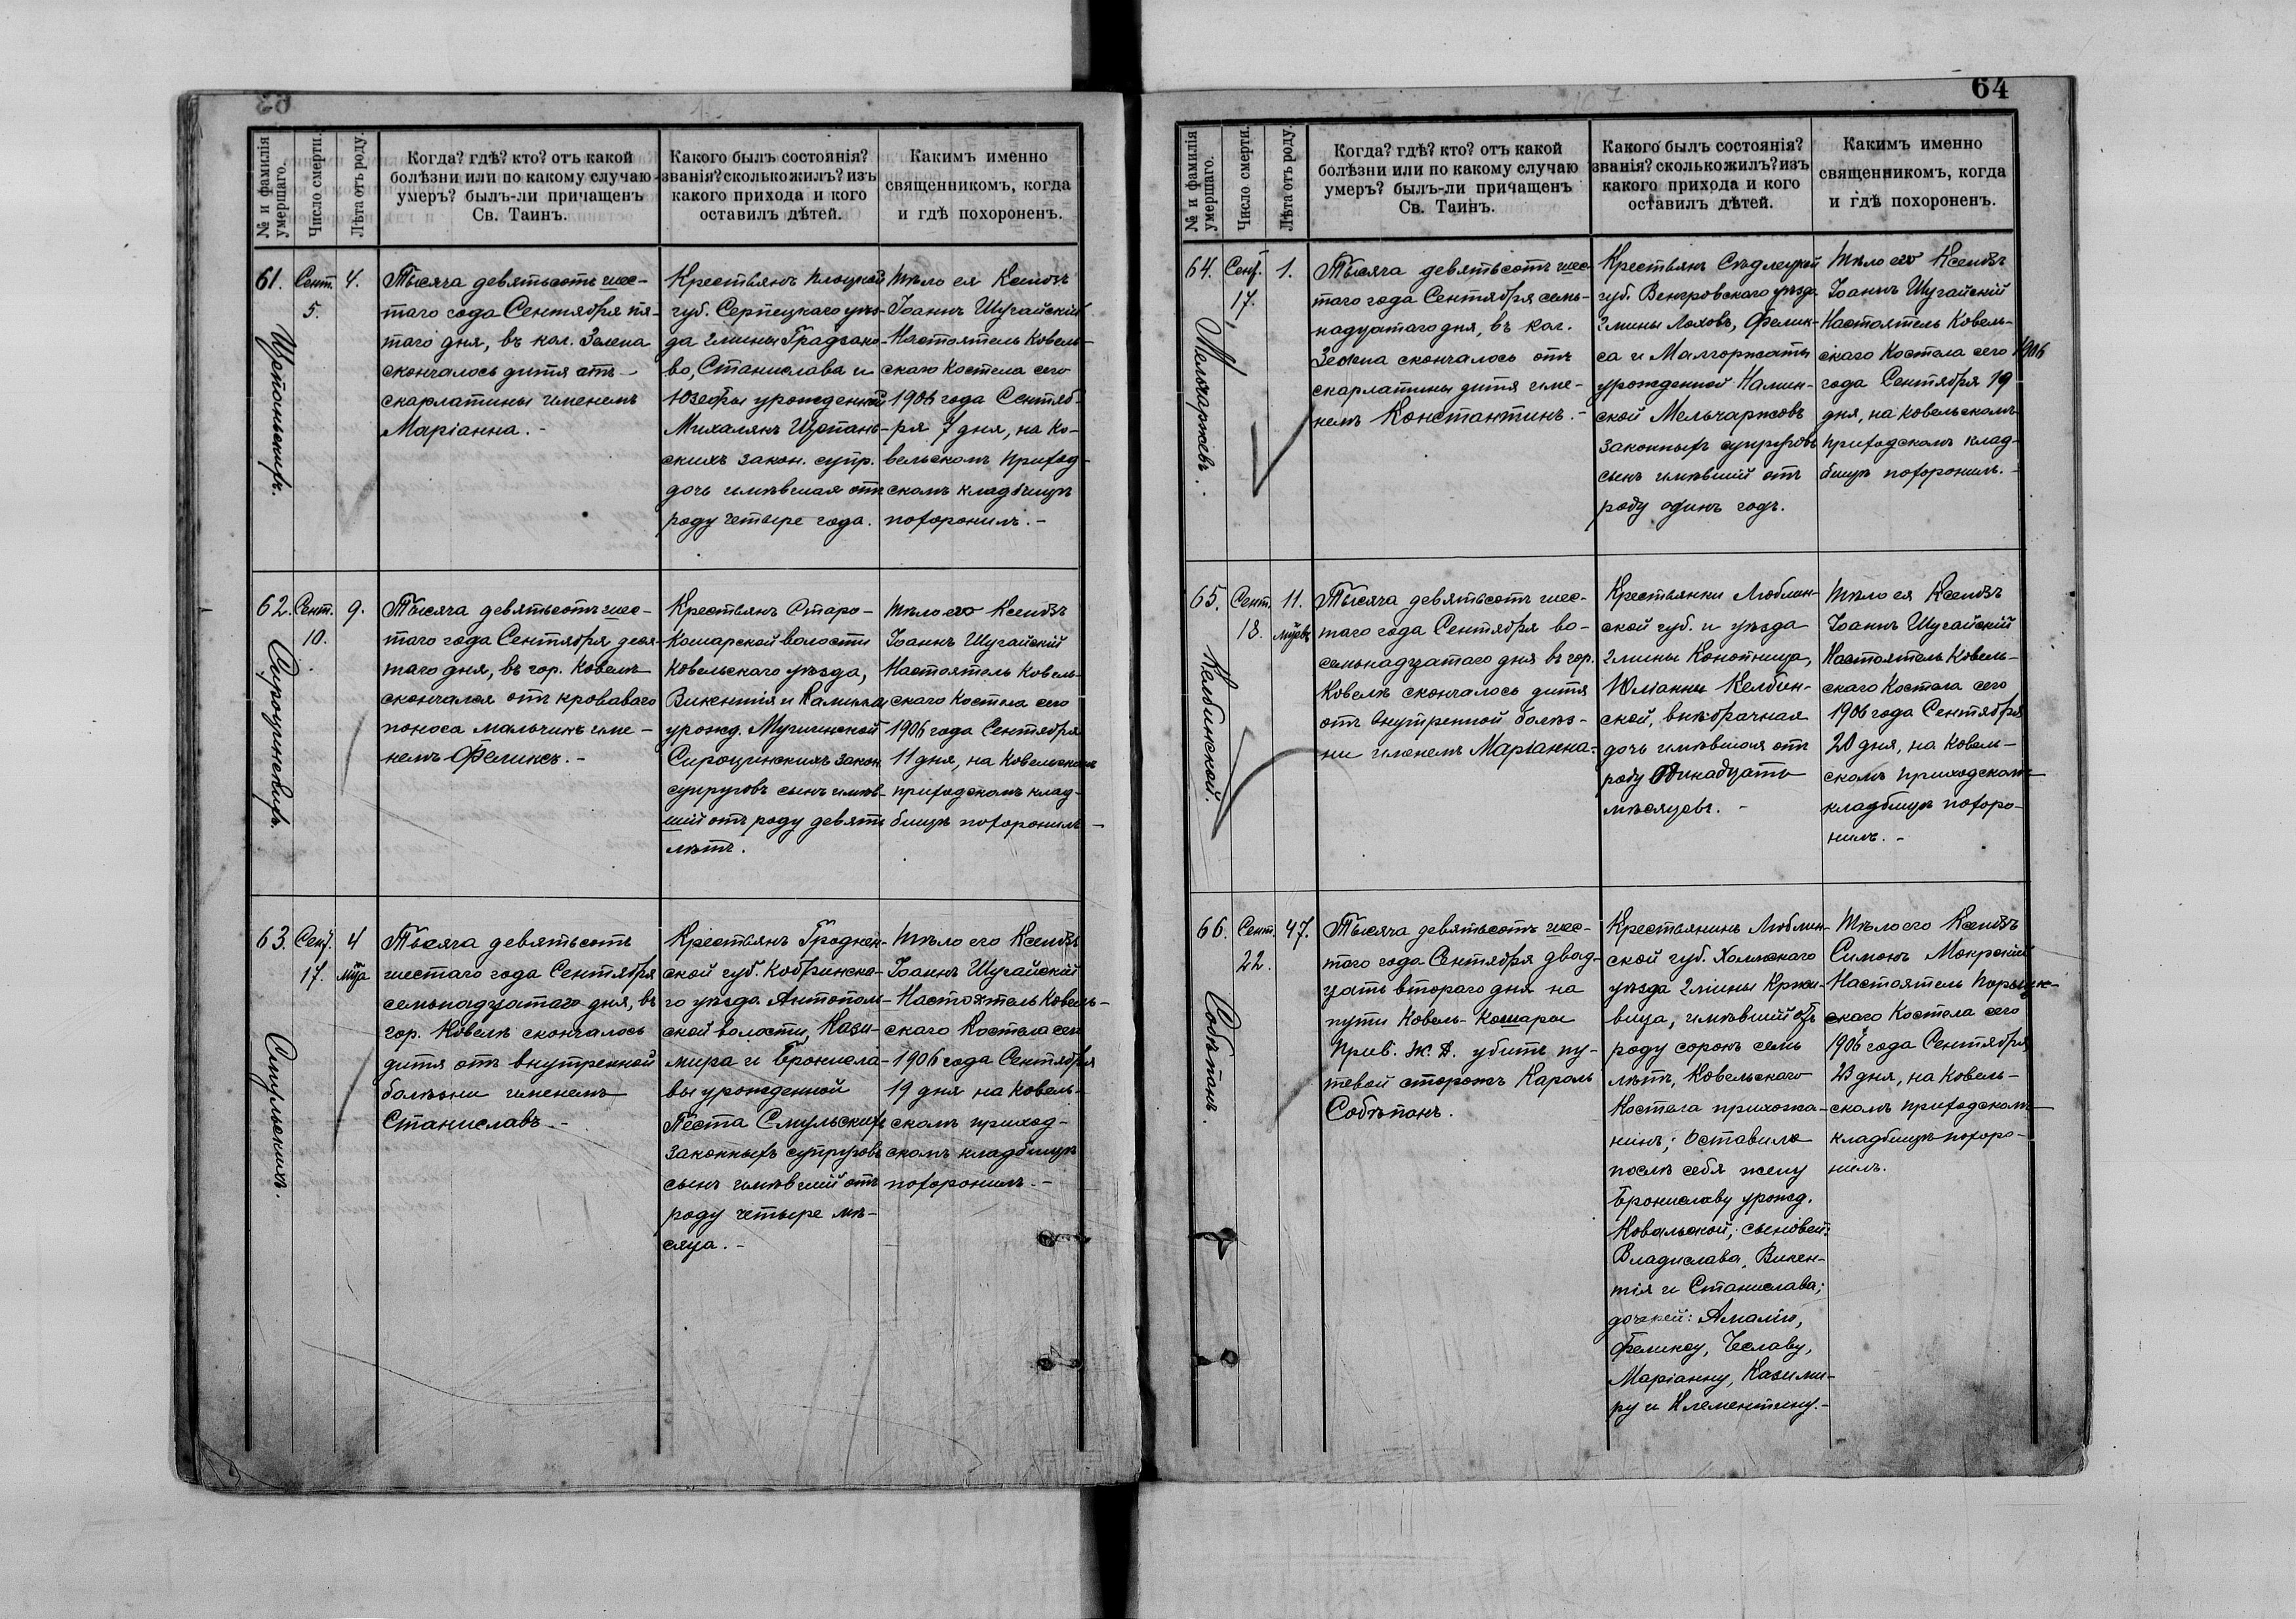 63
№ и фамилія умершаго.
Число смерти.
Лѣта отъ роду.
Когда? гдѣ? кто? отъ какой
болѣзни или по какому случаю
умеръ? былъ-ли причащенъ
Св. Таинъ.
Какого былъ состоянія?
званія? сколько жилъ? изъ
какого прихода и кого
оставилъ дѣтей.
Какимъ именно
священникомъ, когда
и гдѣ похороненъ.
61.
Сент.
5.
4.
Тысяча девятьсотъ шес-
таго года Сентября пя-
таго дня, въ кол. Зелена
скончалось дитя отъ
скарлатины именемъ
Маріанна. -
Крестьянъ Плоцкой
губ. Серпецкаго уѣз-
да гмины
Станислава и
Юзефы урожденной
Михалякъ
скихъ закон. супр.
дочь имѣвшая отъ
роду четыре года.
Тѣло ея Ксендзъ
Іоаннъ Шугайскій
Настоятель Ковель-
скаго Костела сего
1906 года Сентяб-
ря 7 дня, на Ко-
вельскомъ приход-
скомъ кладбищѣ
похоронилъ. -
62.
Сент.
10.
9.
Тысяча девятьсотъ шес-
таго года Сентября деся-
таго дня, въ гор. Ковелѣ
скончался отъ кроваваго
поноса мальчикъ име-
немъ Феликсъ. -
Крестьянъ Старо-
Кошарской волости
Ковельскаго уѣзда,
Викентія и
урожд.
закон.
супруговъ сынъ имѣв-
шій отъ роду девять
лѣтъ.
Тѣло его Ксендзъ
Іоаннъ Шугайскій
Настоятель Ковель-
скаго Костела сего
1906 года Сентября
11 дня, на Ковельскомъ
приходскомъ клад-
бищѣ похоронилъ -
63.
Сент.
17.
4
мѣса
Смульскихъ.
Тысяча девятьсотъ
шестаго года Сентября
семьнадцатаго дня, въ
гор. Ковелѣ скончалось
дитя отъ внутренной
болѣзни именемъ
Станиславъ. -
Крестьянъ Гроднен-
ской губ. Кобринска-
го уѣзда Антополь-
ской волости, Кази-
мира и Бронисла-
вы урожденной
Песта Смульскихъ
законныхъ супруговъ
сынъ имѣвшій отъ
роду четыре мѣ-
сяца. -
Тѣло его Ксендзъ
Іоаннъ Шугайскій
Настоятель Ковель-
скаго Костела сего
1906 года Сентября
19 дня на Ковель-
скомъ приход-
скомъ кладбищѣ
похоронилъ. -
64
№ и фамилія умершаго.
Число смерти.
Лѣта отъ роду.
Когда? гдѣ? кто? отъ какой
болѣзни или по какому случаю
умеръ? былъ-ли причащенъ
Св. Таинъ.
Какого былъ состоянія?
званія? сколько жилъ? изъ
какого прихода и кого
оставилъ дѣтей.
Какимъ именно
священникомъ, когда
и гдѣ похороненъ.
64.
Сент.
17.
1.
Тысяча девятьсотъ шес-
таго года Сентября семь-
надцатаго дня, въ кол.
Зелена скончалось отъ
скарлатины дитя име-
немъ Константинъ. -
Крестьянъ Сѣдлецкой
губ. Венгровскаго уѣзда
гмины Лоховъ, Феликс-
са и Малгоржаты
урожденной Камин-
ской Мельчаржовъ
законныхъ супруговъ
сынъ имѣвшій отъ
роду одинъ годъ.
Тѣло его Ксендзъ
Іоаннъ Шугайскій
Настоятель Ковель-
скаго Костела сего 1906
года Сентября 19
дня, на Ковельскомъ
приходскомъ клад-
бищѣ похоронилъ. -
65.
Сент.
18.
11.
мѣсяцевъ
Келбинской.
Тысяча девятьсотъ шес-
таго года Сентября во-
семьнадцатаго дня въ гор.
Ковелѣ скончалось дитя
отъ внутренной болѣз-
ни именемъ Маріанна.
Крестьянки Люблин-
ской губ. и уѣзда
гмины Конопница,
Юліанны Келбин-
ской, внѣбрачная
дочь имѣвшая отъ
роду одинадцать
мѣсяцевъ. -
Тѣло ея Ксендзъ
Іоаннъ Шугайскій
Настоятель Ковель-
скаго Костела сего
1906 года Сентября
20 дня, на Ковель-
скомъ приходскомъ
кладбищѣ похоро-
нилъ. -
66.
Сент.
22.
47.
Собѣпанъ.
Тысяча девятьсотъ шес-
таго года Сентября двад-
цать втораго дня на
пути Ковель-Кошары
Прив. Ж. Д. убитъ пу-
тевой сторожъ Кароль
Собѣпанъ.
Крестьянинъ Люблин-
ской губ. Холмскаго
уѣзда гмины Криви-
вица, имѣвшій отъ
роду сорокъ семь
лѣтъ, Ковельскаго
Костела прихожа-
нинъ; оставилъ
послѣ себя жену
Брониславу урожд.
Ковальской; сыновей:
Владислава, Викен-
тія и Станислава;
дочерей: Амалію,
Феликсу, Чеславу,
Маріанну, Казими-
ру и Клементину. -
Тѣло его Ксендзъ
Симонъ
Настоятель
скаго Костела сего
1906 года Сентября
23 дня, на Ковель-
скомъ приходскомъ
кладбищѣ похоро-
нилъ.